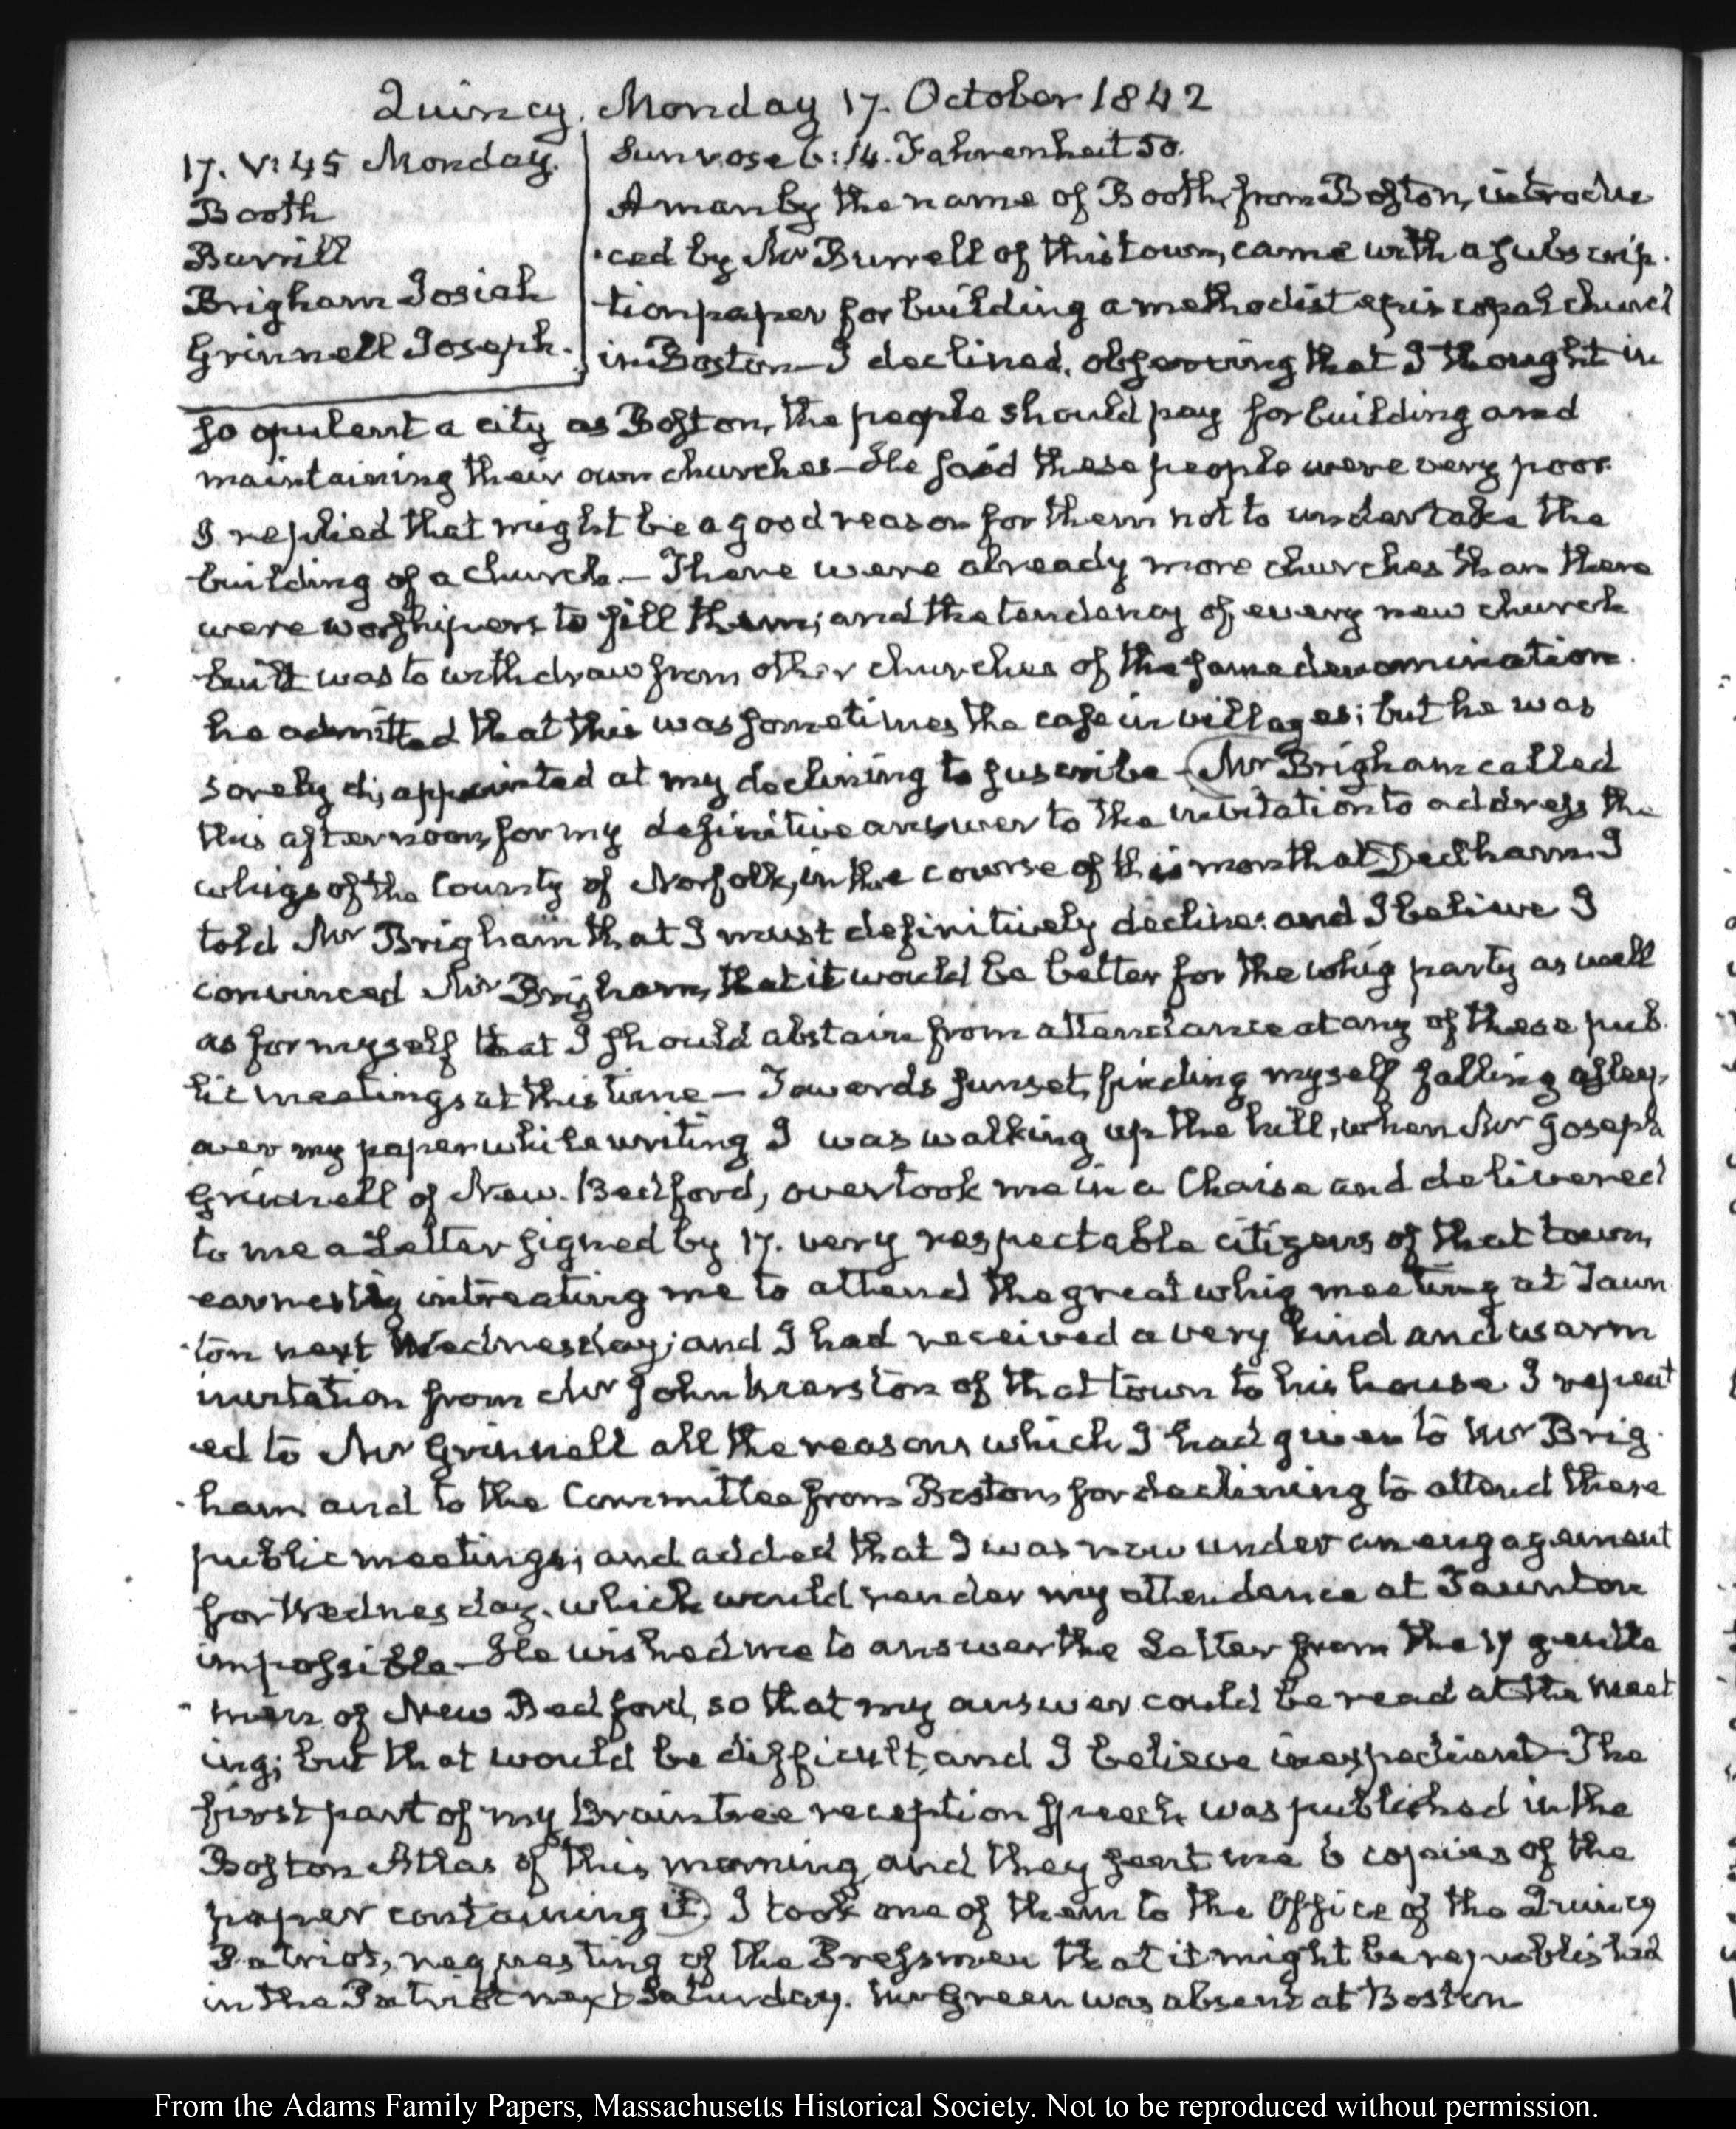 Quincy. Monday 17. October 1842
17. V:45 Monday.
Booth
Burrill
Brigham Josiah
Grinnell Joseph.
Sun rose 6:14. Fahrenheit 50.
A man by the name of Booth, from Boston, introdu
ced by Mr Burrell of this town, came with a subscrip
tion paper for building a methodist episcopal church
in Boston— I declined, observing that I thought in
so opulent a city as Boston, the people should pay for building and
maintaining their own churches— He said these people were very poor.
I replied that might be a good reason for them not to undertake the
building of a church.— There were already more churches than there
were worshipers to fill them; and the tendency of every new church
built was to withdraw from other churches of the same denomination.
he admitted that this was sometimes the case in villages; but he was
sorely disappointed at my declining to suscribe— Mr Brigham called
this afternoon, for my definitive answer to the invitation to address the
whigs of the County of Norfolk, in the course of this month at Dedham. I
told Mr Brigham that I must definitively decline: and I believe I
convinced Mr Brigham, that it would be better for the whig party as well
as for myself that I should abstain from attendance at any of these pub
lic meetings at this time— Towards sunset, finding myself falling asleep,
over my paper while writing I was walking up the hill, when Mr Joseph
Grinnell of New-Bedford, overtook me in a Chaise and delivered
to me a Letter signed by 17. very respectable citizens of that town,
earnestly intreating me to attend the great whig meeting at Taun
ton next Wednesday; and I had received a very kind and warm
invitation from Mr John Marston of that town to his house. I repeat
ed to Mr Grinnell all the reasons which I had given to Mr Brig
ham and to the Committee from Boston, for declining to attend these
public meetings; and added that I was now under an engagement
for Wednesday, which would render my attendance at Taunton
impossible— He wished me to answer the Letter from the 17 gentle
men of New Bedford, so that my answer could be read at the meet
ing; but that would be difficult, and I believe inexpedient— The
first part of my Braintree reception speech was published in the
Boston Atlas of this morning, and they sent me 6 copies of the
paper containing it. I took one of them to the Office of the Quincy
Patriot, requesting of the Pressmen that it might be republished
in the Patriot next Saturday. Mr Green was absent at Boston
From the Adams Family Papers, Massachusetts Historical Society. Not to be reproduced without permission.